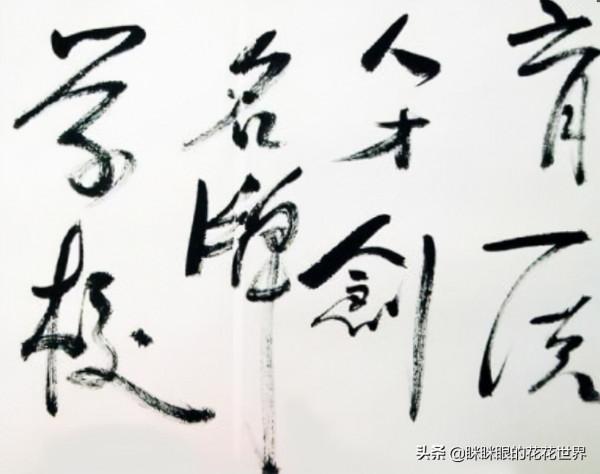 育一流
人才创
名牌
学校
头条 @眯眯眼的花花世界